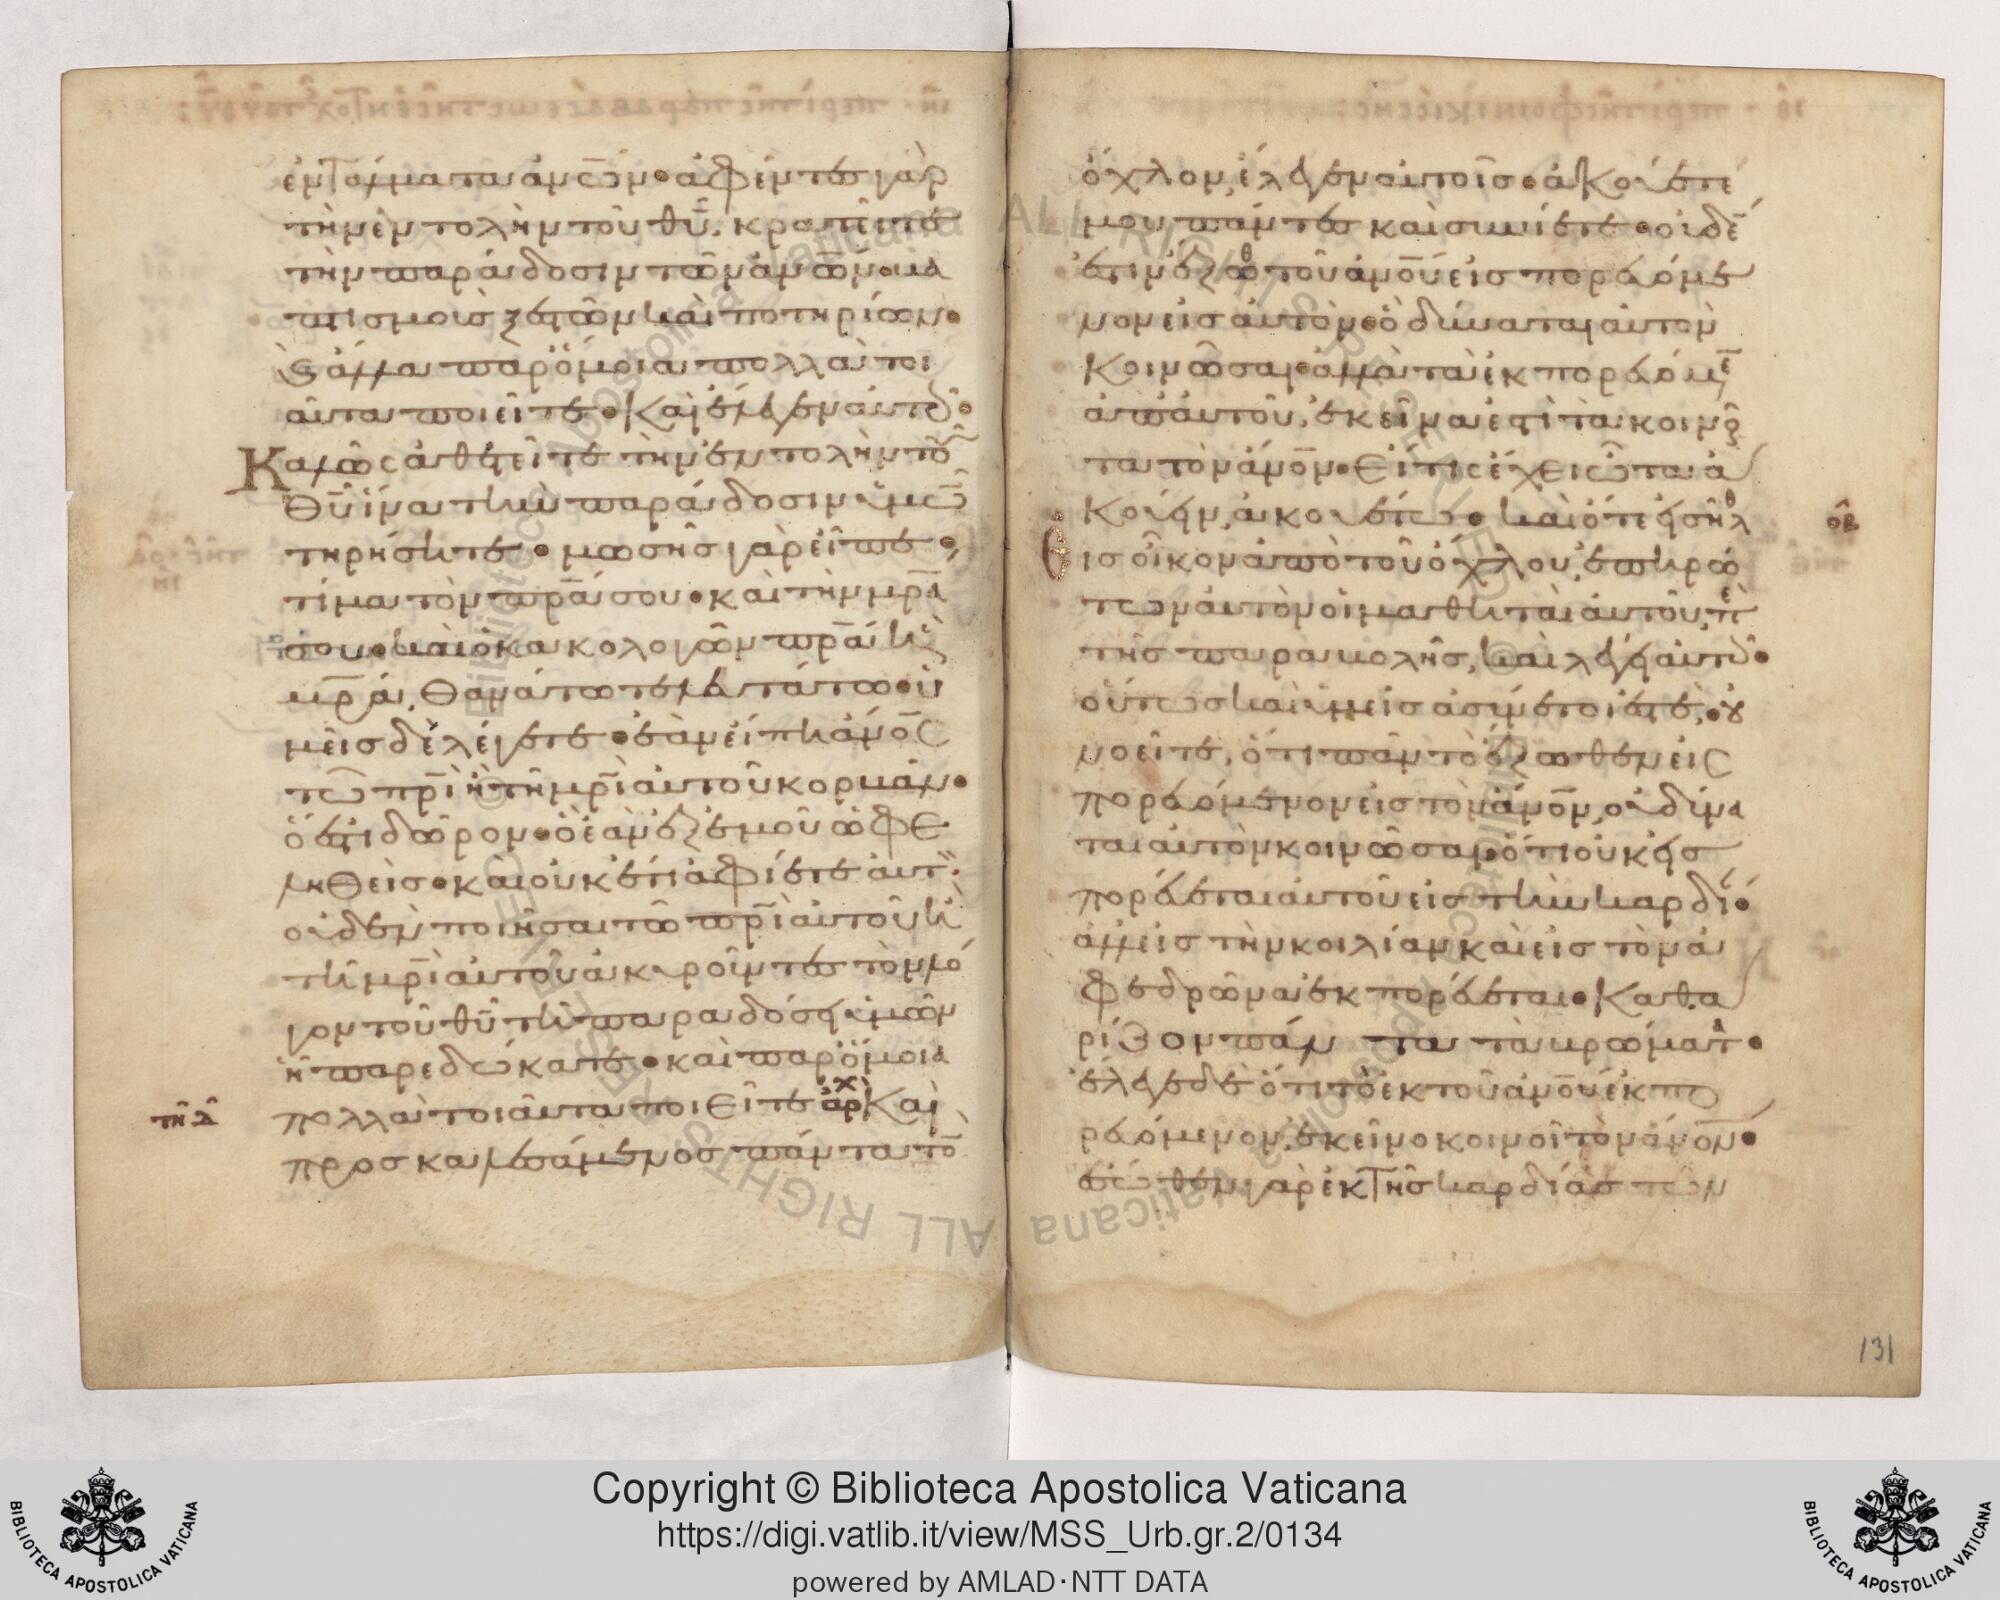 ἐντάλματα ἀνῶν· ἀφέντες γὰρ
τὴν ἐντολὴν τοῦ θῦ, κρατεῖτε
τὴν παράδοσιν τῶν ἀνῶν· βα
πτισμοὺς ξεστῶν καὶ ποτηρίων·
ἄλλα παρόμοια πολλὰ τοι
αῦτα ποιεῖτε· Καὶ ἔλεγεν αὐτοῖς·
Καλῶς ἀθετεῖτε τὴν ἐντολὴν τοῦ
θῦ ἵνα τὴν παράδοσιν ὑμῶ
τηρήσητε· μωσῆς γὰρ εἶπε·
τίμα τὸν πρα σου· καὶ τὴν μρα
σου· καὶ ὁ κακολογῶν πρα ἢ
μρα, θανάτω τελευτάτω· ὑ
μεῖς δὲ λέγετε· ἐὰν εἴπη ἀνος
τῶ πρι ἢ τῆ μρι αὐτοῦ κορβάν·
ὅ ἐστι δῶρον· ὃ ἐὰν ἐξ ἐμοῦ ὠφε
ληθεῖς· καὶ οὐκέτι ἀφίετε αὐτ
οὐδὲν ποιῆσαι τῶ πρι αὐτοῦ ἢ
τῆ μρι αὐτοῦ ἀκυροῦντες τὸν λό
γον τοῦ θῦ τῆ παραδόσει ὑμῶν
ἧ παρεδώκατε· καὶ παρόμοια
πολλὰ τοιαῦτα ποιεῖτε ἀρχ Καὶ
προσκαλεσάμενος πάντα τὸ
ὄχλον, ἔλεγεν αὐτοῖς· ἀκούετέ
μου πάντες καὶ συνίετε· οὐδέ
ἐστιν ἔξωθ τοῦ ἀνου εἰσπορευόμε
νον εἰς αὐτὸν· ὃ δύναται αὐτὸν
κοινῶσαι· ἀλλὰ τὰ ἐκπορευόμε
ἀπ αὐτοῦ, ἐκεῖνα ἐστὶ τὰ κοινοῦ
τα τὸν ἀνον· Εἴ τις ἔχει ὦτα ἀ
κούειν, ἀκουέτω· καὶ ὅτε εἰσῆλθ
εἰς οἶκον ἀπὸ τοῦ ὄχλου, ἐπηρώ
των αὐτὸν οἱ μαθηταὶ αὐτοῦ, πε
τῆς παραβολῆς, καὶ λέγει αὐτοῖς·
οὕτως καὶ ὑμεῖς ἀσύνετοί ἐστε, οὐ
νοεῖτε, ὅτι πᾶν τὸ ἔξωθεν εἰς
πορευόμενον εἰς τὸν ἀνον, οὐ δύνα
ται αὐτὸν κοινῶσαι· ὅτι οὐκ εἰσ
πορεύεται αὐτοῦ εἰς τὴν καρδί·
ἀλλ εἰς τὴν κοιλίαν καὶ εἰς τὸν ἀ
φεδρῶνα ἐκπορεύεται· καθα
ρίζον πάν τα τὰ βρώματ·
ἔλεγε δὲ ὅτι τὸ ἐκ τοῦ ἀνου ἐκπο
ρευόμενον, ἐκεῖνο κοινοῖ τὸν ἀνον·
ἔσωθεν γὰρ ἐκ τῆς καρδίας τῶν
οβ
131
Copyright © Biblioteca Apostolica Vaticana
https://digi.vatlib.it/view/MSS_Urb.gr.2/0134
powered by AMLAD·NTT DATA
BIBLIOTECA APOSTOLICA VATICANA
BIBLIOTECA APOSTOLICA VATICANA